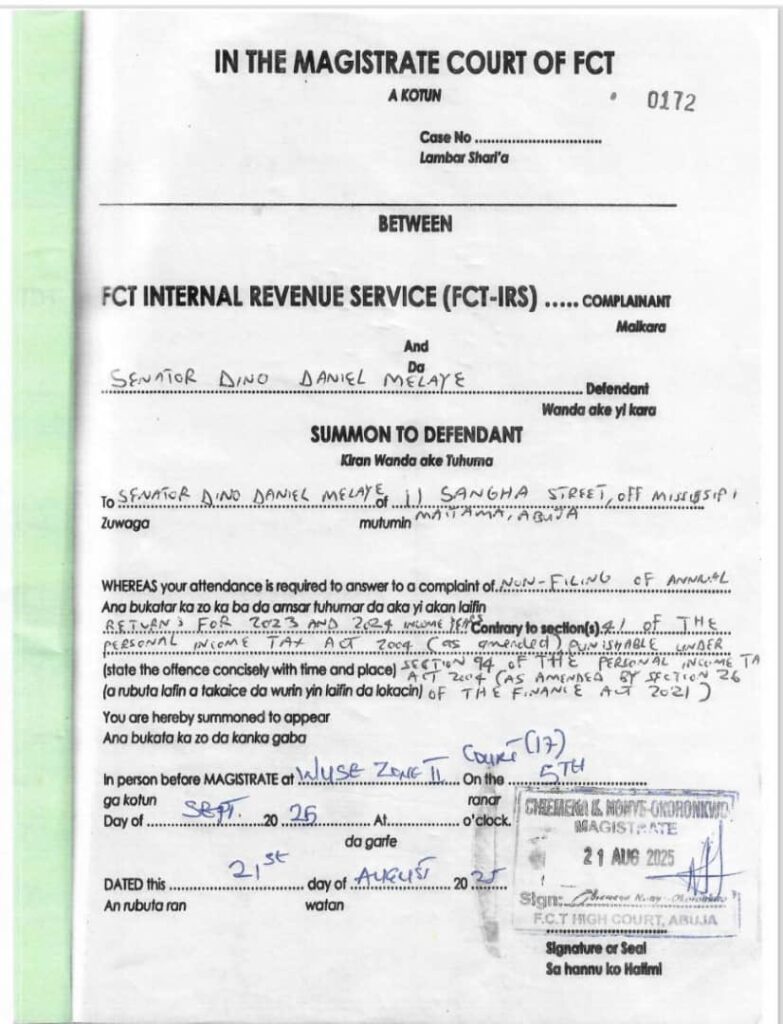 IN THE MAGISTRATE COURT OF FCT
A KOTUN
0172
Case No ..............................
Lambar Shari'a
BETWEEN
FCT INTERNAL REVENUE SERVICE (FCT-IRS) ..... COMPLAINANT
Maikara
And
Da
SENATOR DINO DANIEL MELAYE Defendant
Wanda ake yi kara
SUMMON TO DEFENDANT
Kiran Wanda ake Tuhuma
To SENATOR DINO DANIEL MELAYE of 11 SANGHA STREET, OFF MISSISIPI
Zuwaga mutumin MAITAMA, ABUJA
WHEREAS your attendance is required to answer to a complaint of NON-FILING OF ANNUAL
Ana bukatar ka zo ka ba da amsar tuhumar da aka yi akan laifin
RETURNS FOR 2023 AND 2024 INCOME YEARS Contrary to section(s) 41 OF THE
PERSONAL INCOME TAX ACT 2004 (as amended) PUNISHABLE UNDER
(state the offence concisely with time and place) SECTION 94 OF THE PERSONAL INCOME TA
ACT 2004 (AS AMENDED BY SECTION 26
(a rubuta lafin a takaice da wurin yin laifin da lokacin) OF THE FINANCE ACT 2021)
You are hereby summoned to appear
Ana bukata ka zo da kanka gaba
COURT (17)
In person before MAGISTRATE at WUSE ZONE II On the 5TH
ga kotun ranar
Day of SEPT. 20 25 At .......... o'clock.
da garfe
DATED this 21st day of AUGUST 20 25
An rubuta ran watan
CHIEMENA E. NONYE-OKORONKWO
MAGISTRATE
21 AUG 2025
Sign:
F.C.T HIGH COURT, ABUJA
Signature or Seal
Sa hannu ko Hatimi